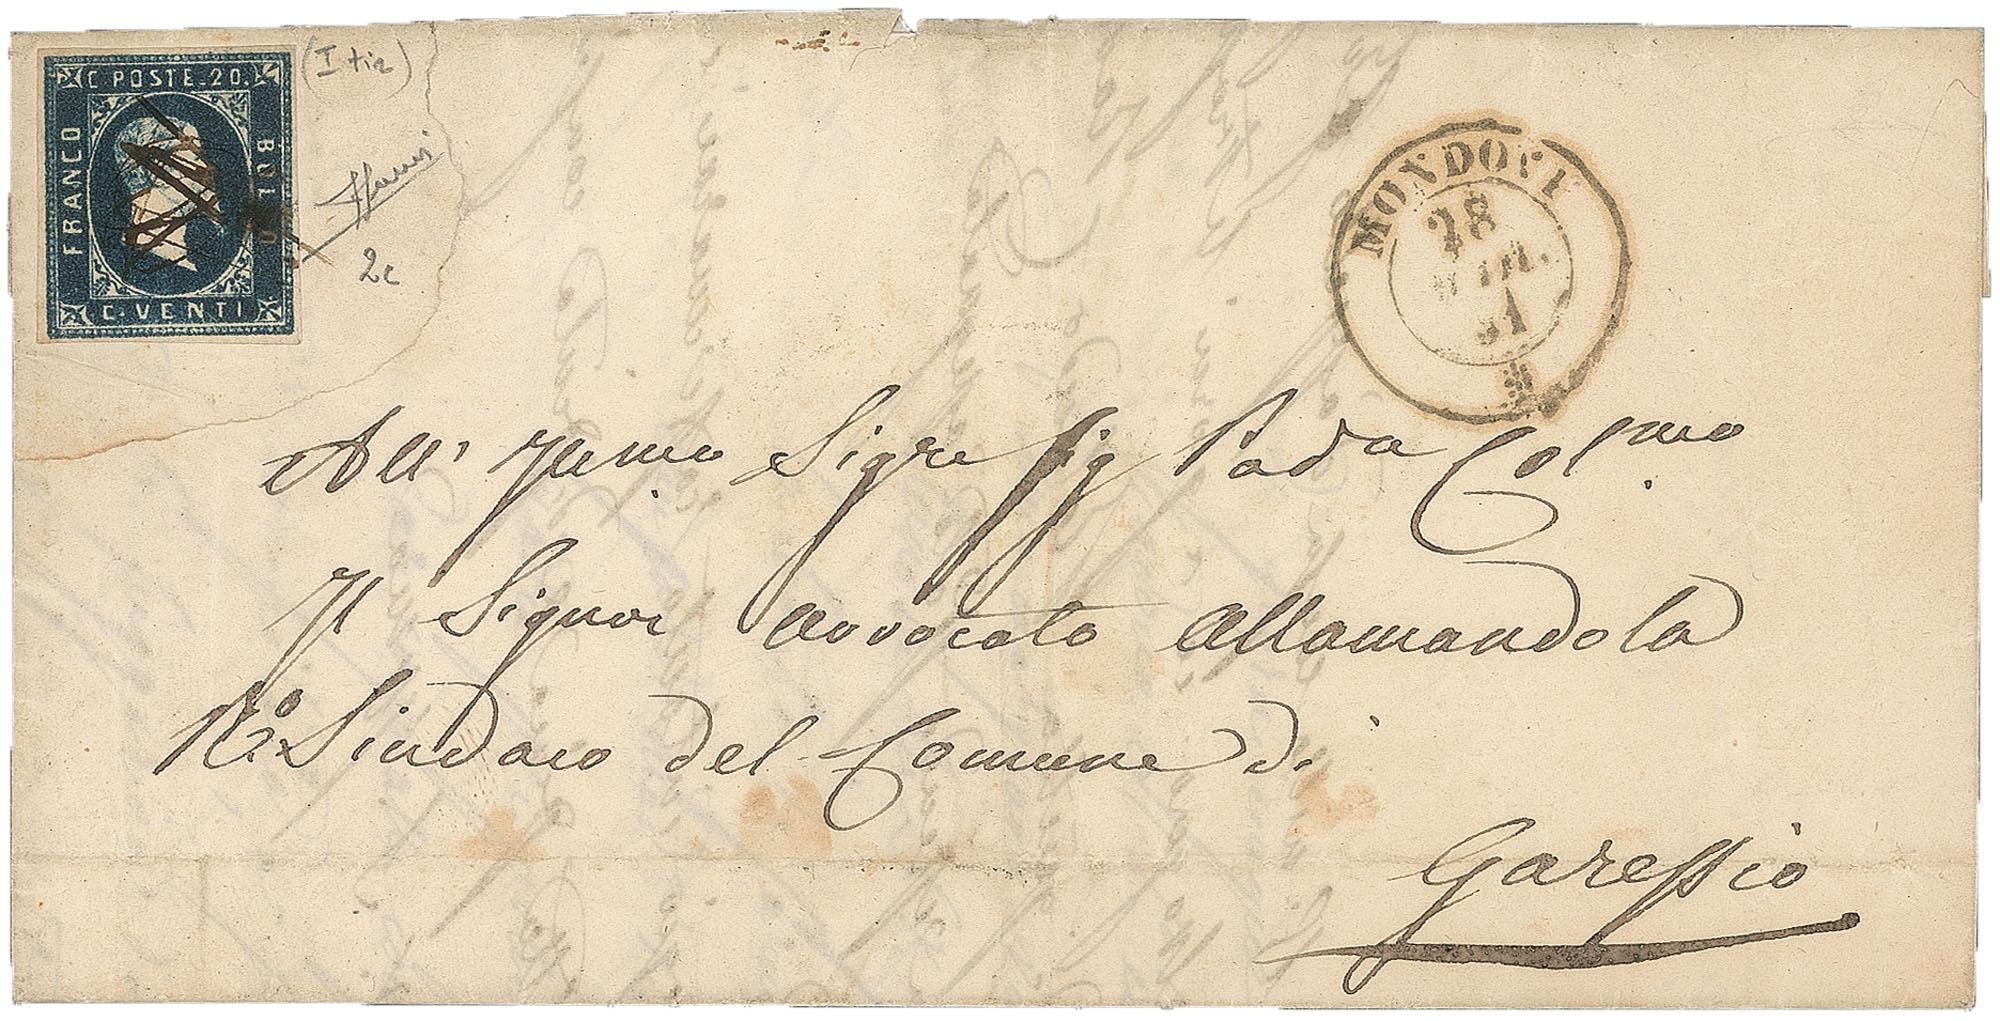 C. POSTE. 20.
FRANCO
BOLLO
C. VENTI
(I tir)
2c
MONDOVI
28
51
All' Illmo Sigre Sig Pad.a Col.mo
Il Signor Avvocato Allamandola
Sindaco del Comune di
Garessio